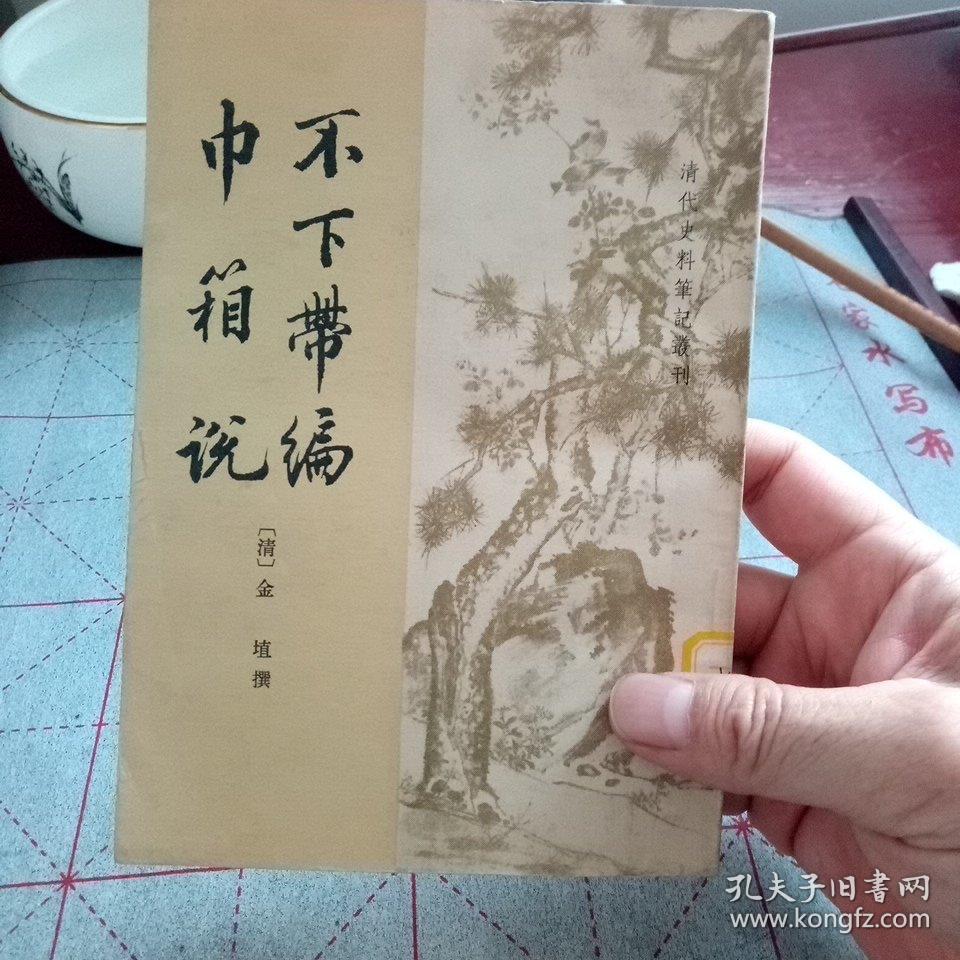 清代史料筆記叢刊
不下帶編
巾箱說
〔清〕金埴撰
家水写布
孔夫子旧書网
www.kongfz.com